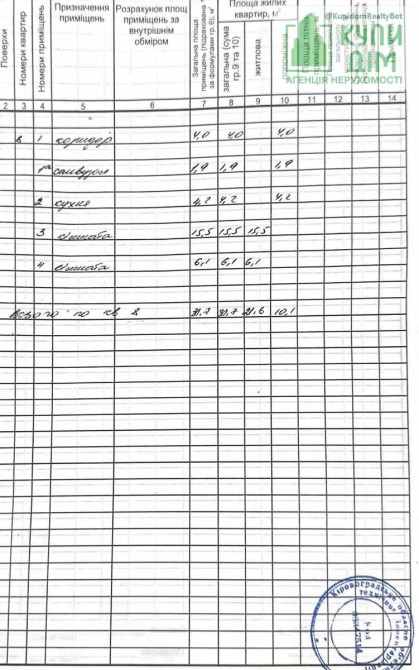 Поверхи
Номери квартир
Номери приміщень
Призначення приміщень
Розрахунок площ приміщень за внутрішнім обміром
Загальна площа приміщень (підрахована за формулами гр.6), м²
Площа жилих квартир, м²
загальна (сума гр.9 та 10)
житлова
допоміжна
@KupidomRealtyBot
КУПИ ДІМ
АГЕНЦІЯ НЕРУХОМОСТІ
2 3 4 5 6 7 8 9 10 11 12 13 14
8 1 коридор 4,0 4,0 4,0
1а санвузол 1,9 1,9 1,9
2 кухня 4,2 4,2 4,2
3 кімната 15,5 15,5 15,5
4 кімната 6,1 6,1 6,1
Всього по кв 8 31,7 31,7 21,6 10,1
Кіровоградське обласне